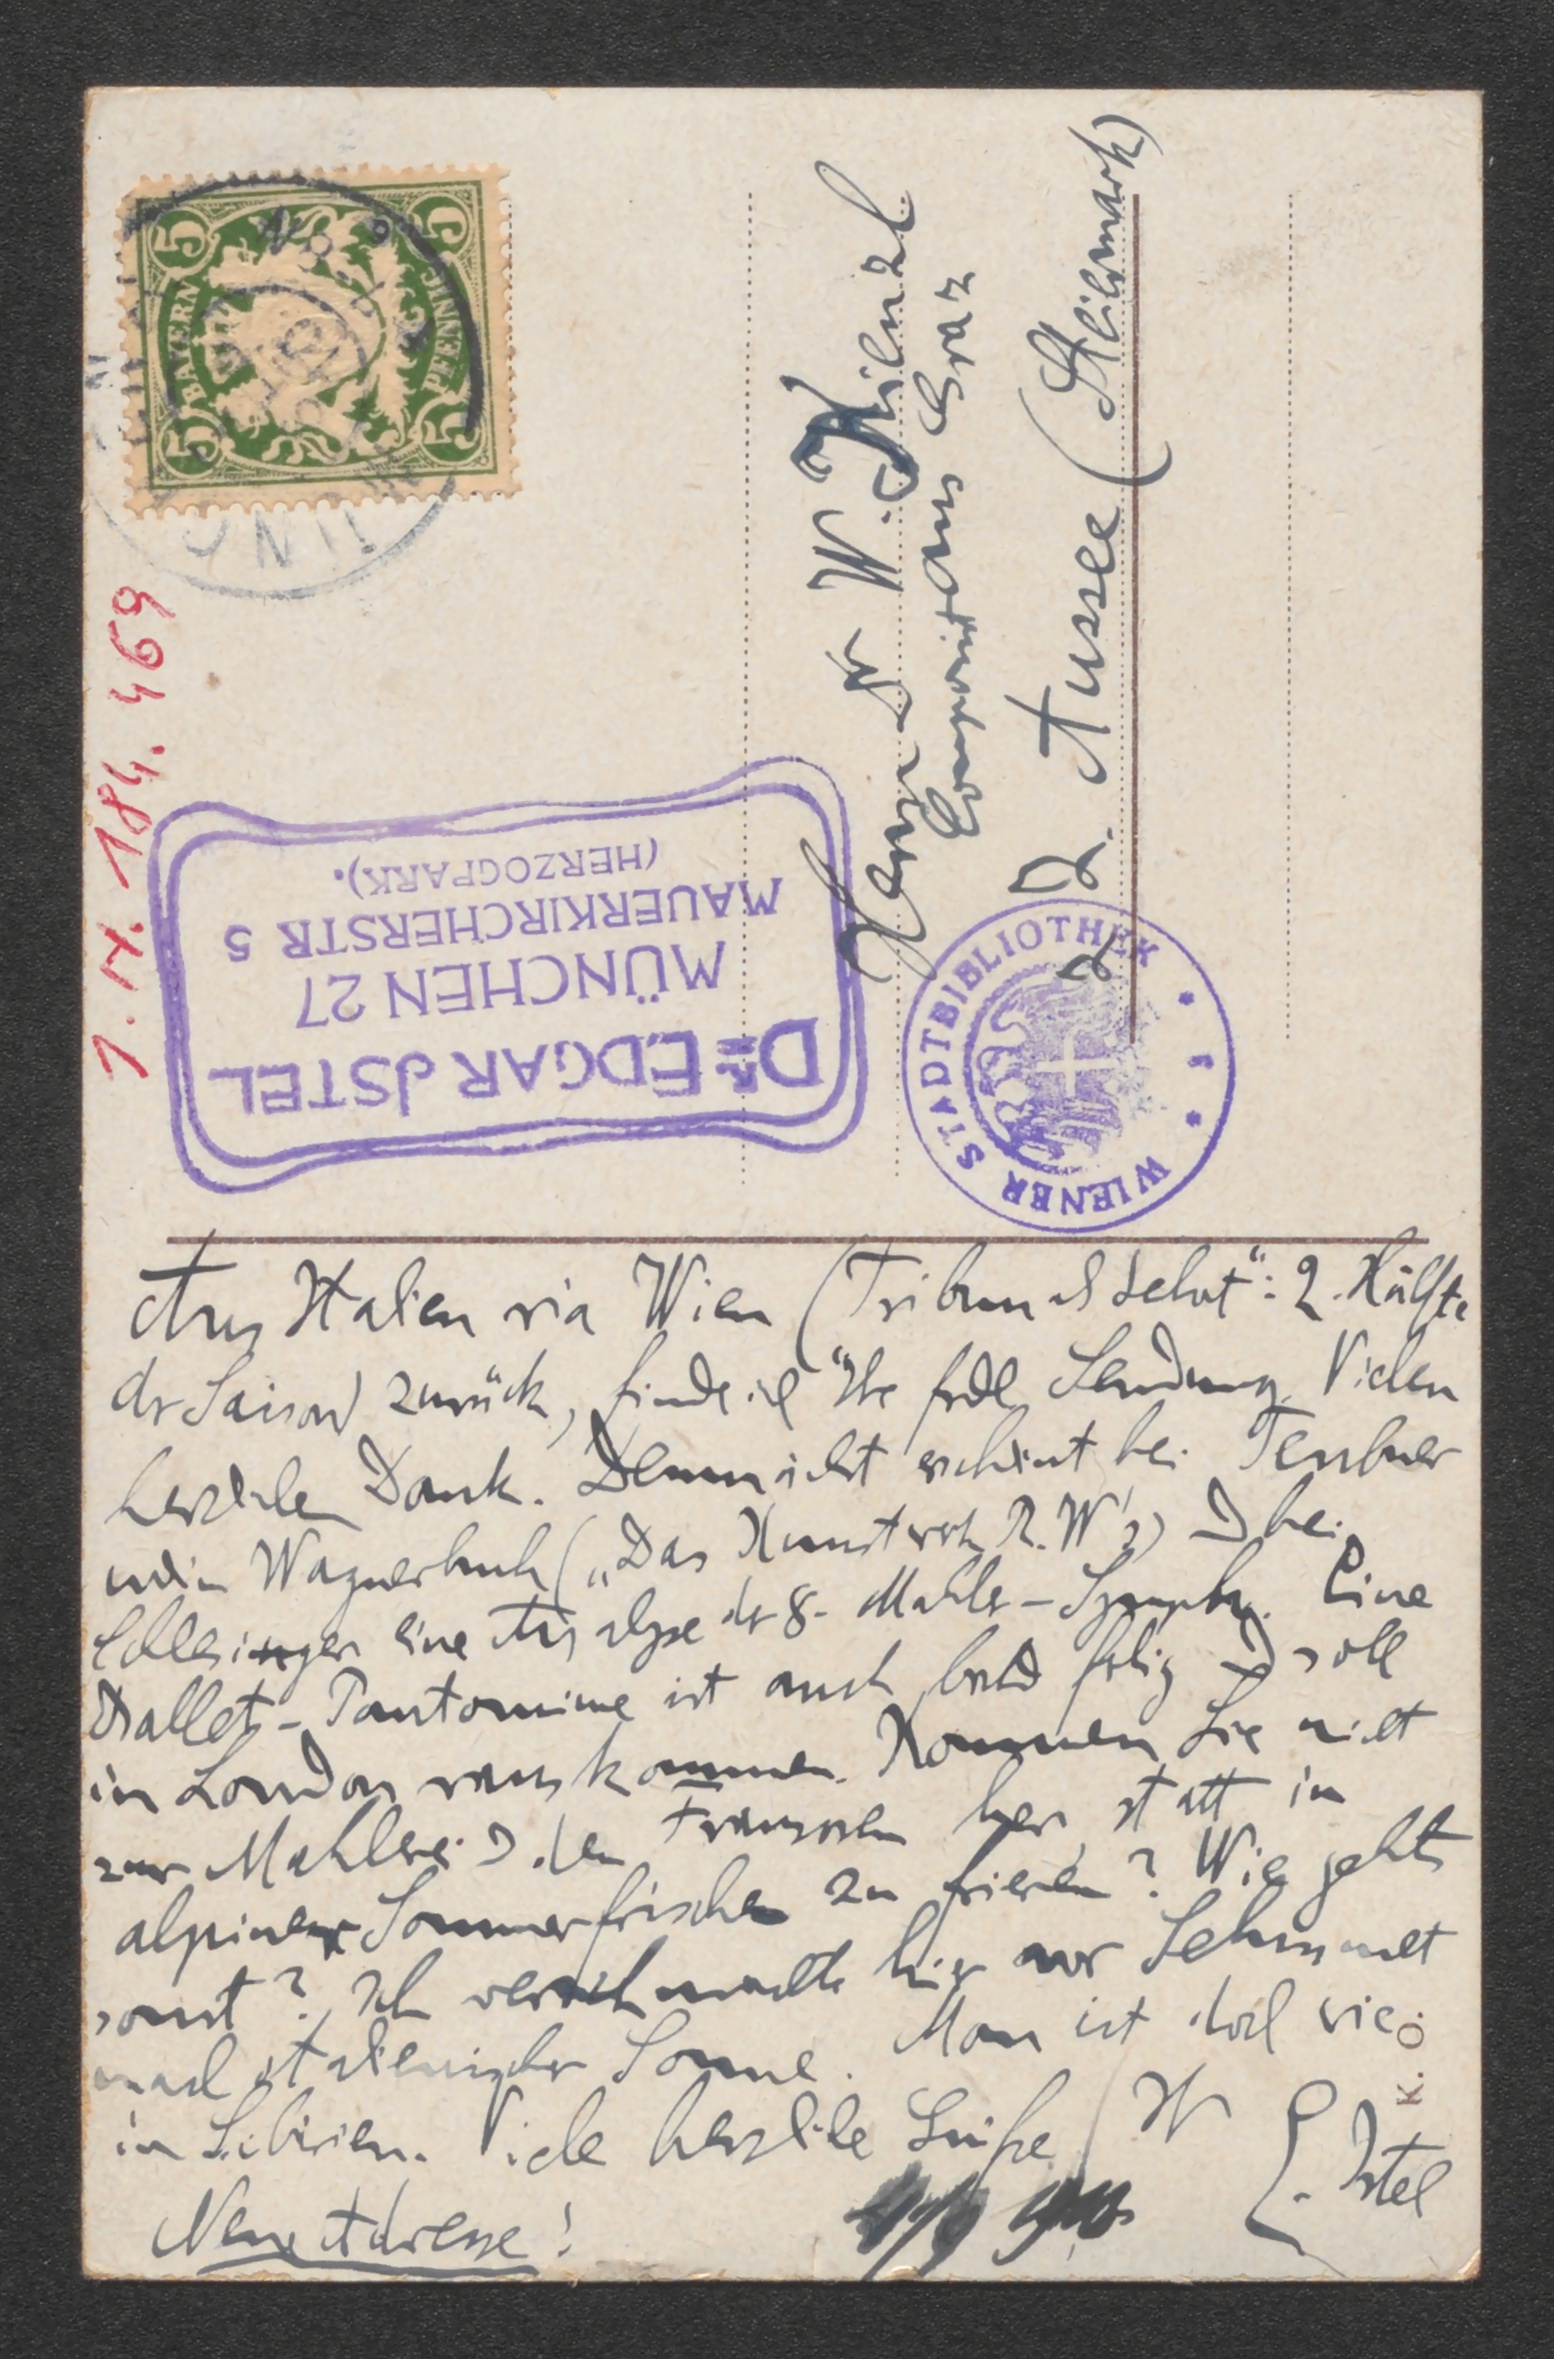 BAYERN
5 5 5 5
PFENNIG
I. N. 184.469
Dr. EDGAR JSTEL
MÜNCHEN 27
MAUERKIRCHERSTR 5
(HERZOGPARK).
Herrn Dr W. Kienzl
Componist aus Graz
z. Z. Aussee (Steiermark)
WIENER STADTBIBLIOTHEK
Aus Italien via Wien („Tribunal Gebot“: 2. Hälfte
dr Saison) zurück, finde ich Ihre frdl Sendung. Vielen
herzlichen Dank. Demnächst erscheint bei Teubner
mein Wagnerbuch („Das Kunstwerk R. W's) u bei
Schlesinger eine Analyse dr 8. Mahler-Symph. Eine
Ballet-Pantomime ist auch bald fertig u soll
in London rauskommen. Kommen Sie nicht
zur Mahlerei u den Franzosen her, statt in
alpinen Sommerfrischen zu frieren? Wie gehts
sonst? Ich verschmachte hier vor Sehnsucht
nach italienischer Sonne. Man ist doch wie
in Sibirien. Viele herzliche Grüße Ihr
E. Istel
Neue Adresse!
K. O.